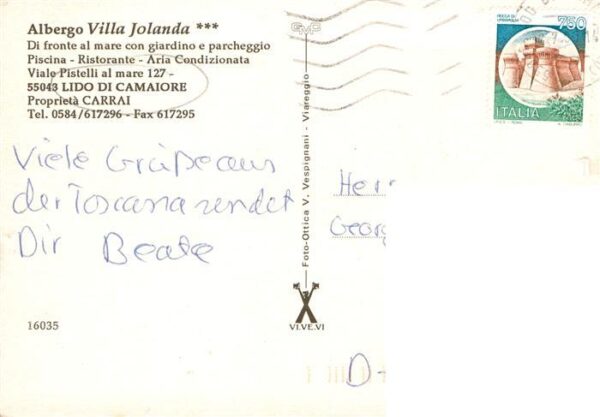 Albergo Villa Jolanda ***
Di fronte al mare con giardino e parcheggio
Piscina - Ristorante - Aria Condizionata
Viale Pistelli al mare 127 -
55043 LIDO DI CAMAIORE
Proprietà CARRAI
Tel. 0584/617296 - Fax 617295
Viele Grüße aus
der Toscana sendet
Dir Beate
16035
Foto-Ottica V. Vespignani - Viareggio
VI.VE.VI
ROCCA DI
URBISAGLIA
750
ITALIA
Herr
Georg
D-